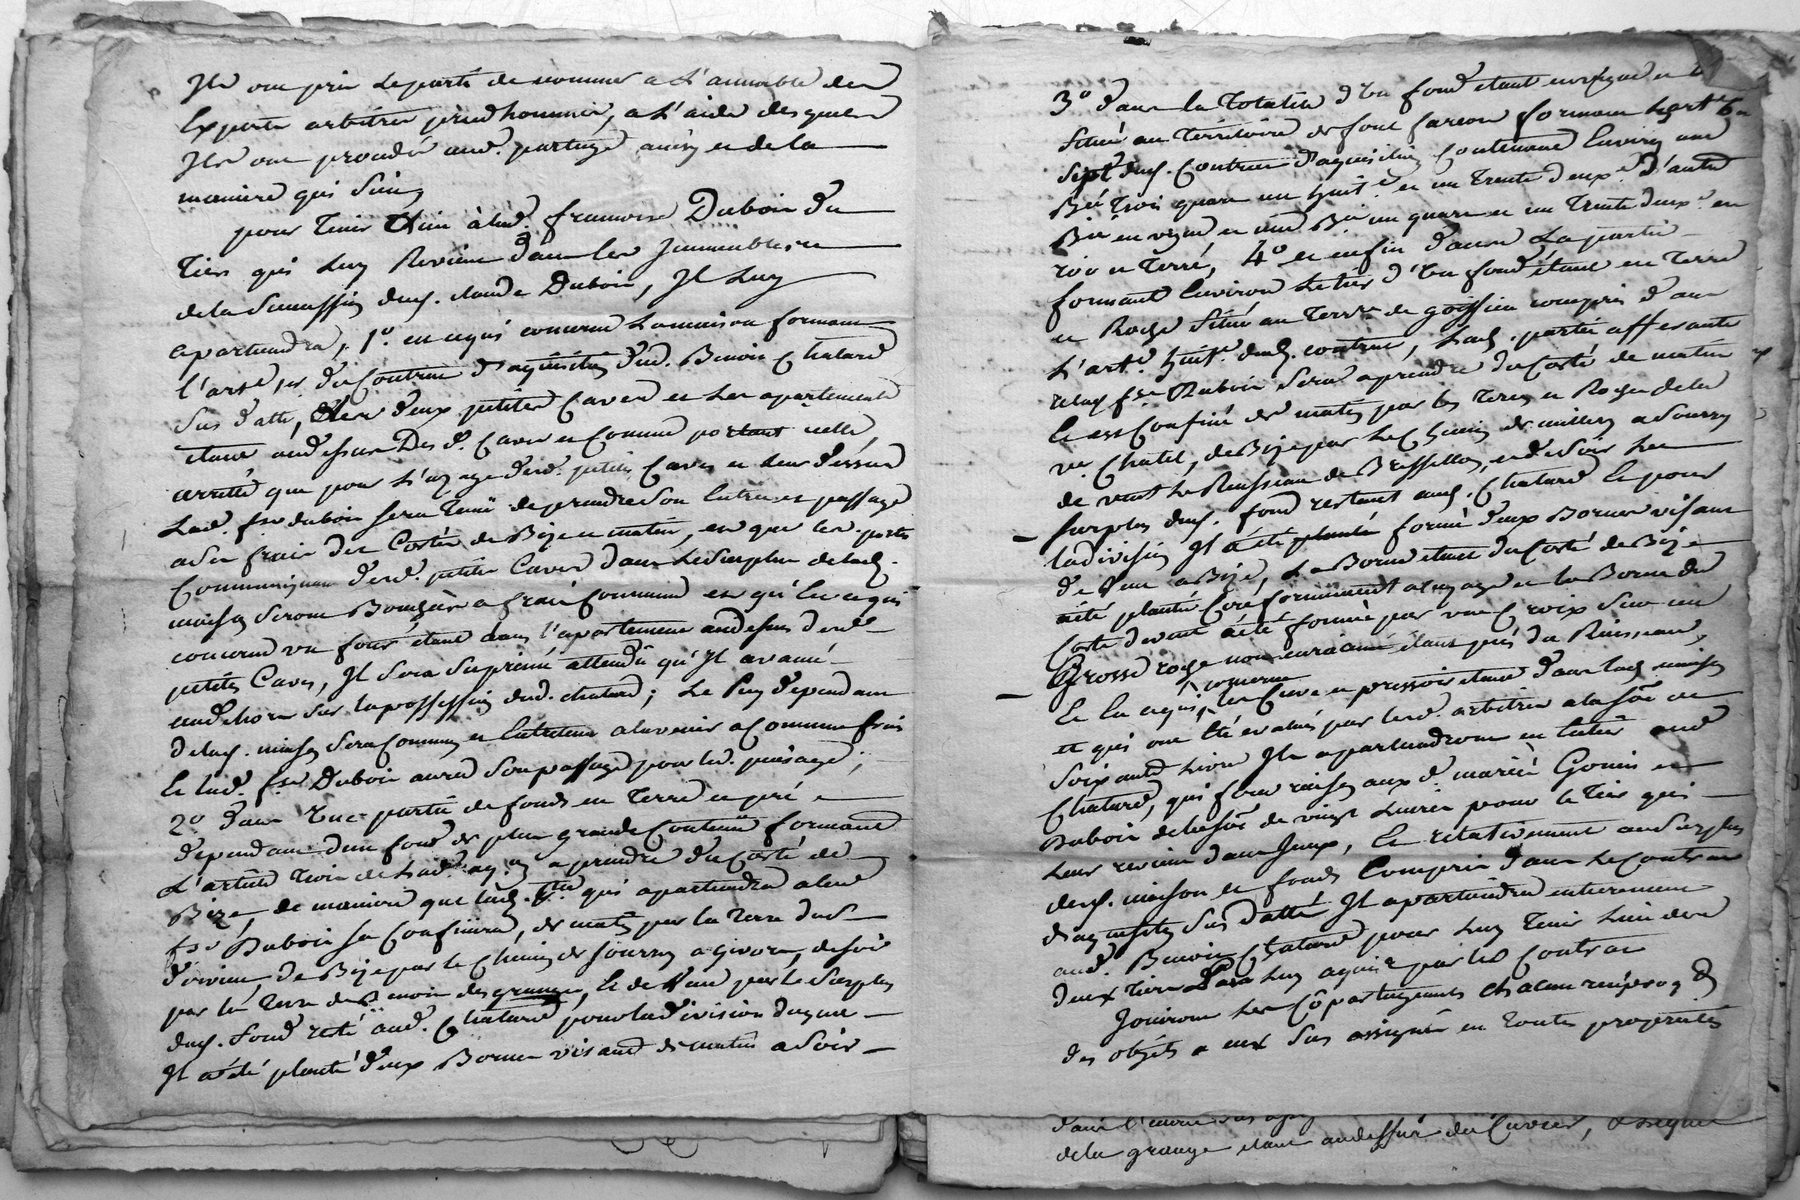 Ils ont pris le parti de nommer a l'amiable des
Experts arbitres prudhommes, a l'aide desquels
Ils ont procédé aud. partage ainsy et de la
maniere qui suit
pour tenir lieu à lad. francoise Dubois du
tiers qui luy Revient dans les Immeubles
de la Succession dud. claude Dubois, Il luy
apartiendra, 1° en ce qui concerne la maison formant
l'art.e 1er du Contrat d'aquisition dud. Benoit Chatard
sus datté, deux petites Caves et les apartements
étant audessus Des d. Caves et Comme portant icelle
arretté que pour l'usage desd. petites Caves et leur dessus
Lad. fse dubois sera tenue de prendre son Entrée et passage
a ses frais des Costés de Bize et matin, et que les portes
Communiquant desd. petites Caves dans le Surplus de lad.
maison seront Bouchées a frais Communs et qu'En ce qui
concerne un four étant dans l'apartement audessus desd.
petites Caves, Il sera suprimé attendu qu'Il avance
audehors sur la possession dud. chatard; Le Puy dependant
de lad. maison sera Commun et Entretenu a lavenir a Communs frais
Et lad. fse Dubois aura son passage pour led. puisage;
2° dans une partie de fonds en terre et pré
dependant d'un fond de plus grande Contenue formant
L'article trois de lad. aq.on a prendre du Costé de
Bize, de maniere que lad. p.tie qui apartiendra a lad.
fse Dubois se Confinera, de matin par la terre dud.
de Bize par le Chemin de Sourzy a givors, de soir
par la terre de Benoit des granges, Et de Vent par le Surplus
dud. fond resté aud. Chatard pour la division duquel
Il a été planté deux Bornes visant de matin a Soir
3° dans la totalité d'un fond étant en vigne et
Situé au territoire de font formant L'art.e
Sept dud. Contrat d'aquisition Contenant Environ une
B.ée trois quarts un huit.e et un trente deux.e d'autre
B.ée en vigne et une B.ée un quart et un trente deux.e en
en terre, 4° et enfin dans La partie
formant Environ le tiers d'un fond étant en terre
et Roche Situé au terr.re de compris dans
L'art.e huit.e dud. contrat, Lad. partie afferante
a lad. fse Dubois sera a prendre du Costé de matin
Et est Confiné de matin par les terres et Roche de la
ve Chatel, de Bize par le Chemin de a Sourzy
de vent le Ruisseau de Bressellon, et de Soir le
surplus dud. fond restant aud. Chatard Et pour
la division Il a été planté formé deux Bornes visant
de Vent a Bize, La Borne étant du Costé de Bize
a été planté Conformement a lusage et la Borne du
Costé de vent a été formée par une Croix sur une
Grosse roche non enracinée étant près du Ruisseau,
Et En ce qui concerne les Cuve et pressoir étant dans lad. maison
et qui ont été evalués par lesd. arbitres a la sõe de
soixante Livres Ils apartiendront en entier aud.
Chatard, qui fera raison aux d. mariés Gonin et
Dubois de la sõe de vingt Livres pour le tiers qui
Leur revient dans Iceux, Et relativement au Surplus
desd. maison et fonds Compris dans Le Contrat
d'aquisition sus datté Il apartiendra entierement
aud. Benoit Chatard pour luy tenir Lieu des
deux tiers a luy aquis par led. Contrat
Jouiront les Copartageants chacun
des objéts a eux sus assignés en toutes proprietés
de la grange étant audessus du Cuvier,